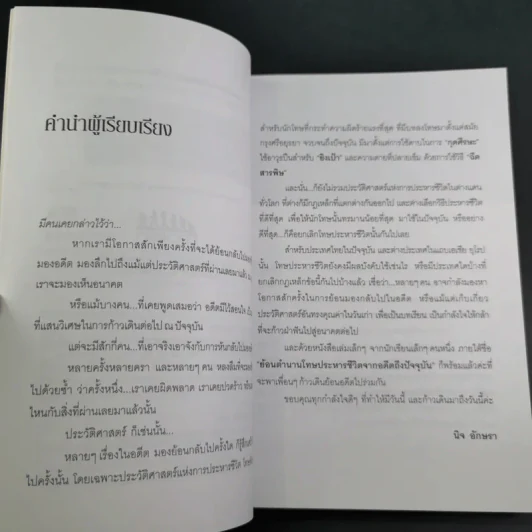 คำนำผู้เรียบเรียง
มีคนเคยกล่าวไว้ว่า...
หากเรามีโอกาสสักเพียงครั้งที่จะได้ย้อนกลับไป
มองอดีต มองลึกไปถึงแม้แต่ประวัติศาสตร์ที่ผ่านเลยมาแล้ว
เราจะมองเห็นอนาคต
หรือแม้บางคน...ที่เคยพูดเสมอว่า อดีตมีไว้สอนใจ
ที่แสนวิเศษในการก้าวเดินต่อไป ณ ปัจจุบัน
แต่จะมีสักกี่คน...ที่เอาจริงเอาจังกับการหันกลับไป
หลายครั้งหลายครา และหลายๆ คน หลงลืม
ไปด้วยซ้ำ ว่าครั้งหนึ่ง...เราเคยผิดพลาด เราเคยปวดร้าว
ไหนกับสิ่งที่ผ่านเลยมาแล้วนั้น
ประวัติศาสตร์ ก็เช่นนั้น...
หลายๆ เรื่องในอดีต มองย้อนกลับไปครั้งใด ก็รู้สึก
ไปครั้งนั้น โดยเฉพาะประวัติศาสตร์แห่งการประหารชีวิต
สำหรับนักโทษที่กระทำความผิดร้ายแรงที่สุด ที่มีบทลงโทษมาตั้งแต่สมัย
กรุงศรีอยุธยา จวบจนถึงปัจจุบัน มีมาตั้งแต่การใช้ดาบในการ "กุดศีรษะ"
ใช้อาวุธปืนสำหรับ "ยิงเป้า" และความตายที่ปลายเข็ม ด้วยการใช้วิธี "ฉีด
สารพิษ"
และนั่น...ก็ยังไม่รวมประวัติศาสตร์แห่งการประหารชีวิตในต่างแดน
ทั่วโลก ที่ต่างก็มีกฎเหล็กที่แตกต่างกันออกไป และต่างเลือกวิธีประหารชีวิต
ที่ดีที่สุด เพื่อให้นักโทษนั้นทรมานน้อยที่สุด มาใช้ในปัจจุบัน หรืออย่าง
ดีที่สุด...ก็คือยกเลิกโทษประหารชีวิตคนนั้นกันไปเลย
สำหรับประเทศไทยในปัจจุบัน และต่างประเทศในแถบเอเชีย ยุโรป
นั้น โทษประหารชีวิตยังคงมีผลบังคับใช้เช่นไร หรือมีประเทศใดบ้างที่
ยกเลิกกฎเหล็กข้อนี้กันไปบ้างแล้ว เชื่อว่า...หลายๆ คน อาจกำลังมองหา
โอกาสสักครั้งในการย้อนมองกลับไปในอดีต หรือแม้แต่เก็บเกี่ยว
ประวัติศาสตร์อันทรงคุณค่าในวันเก่า เพื่อเป็นบทเรียน เป็นกำลังใจให้กล้า
ที่จะก้าวฝ่าฟันไปสู่อนาคตต่อไป
และด้วยหนังสือเล่มเล็กๆ จากนักเขียนเล็กๆ คนหนึ่ง ภายใต้ชื่อ
"ย้อนตำนานโทษประหารชีวิตจากอดีตถึงปัจจุบัน" ก็พร้อมแล้วค่ะที่
จะพาเพื่อนๆ ก้าวเดินย้อนอดีตไปร่วมกัน
ขอบคุณทุกกำลังใจดีๆ ที่ทำให้มีวันนี้ และก้าวเดินมาถึงวันนี้ค่ะ
นิจ อักษรา